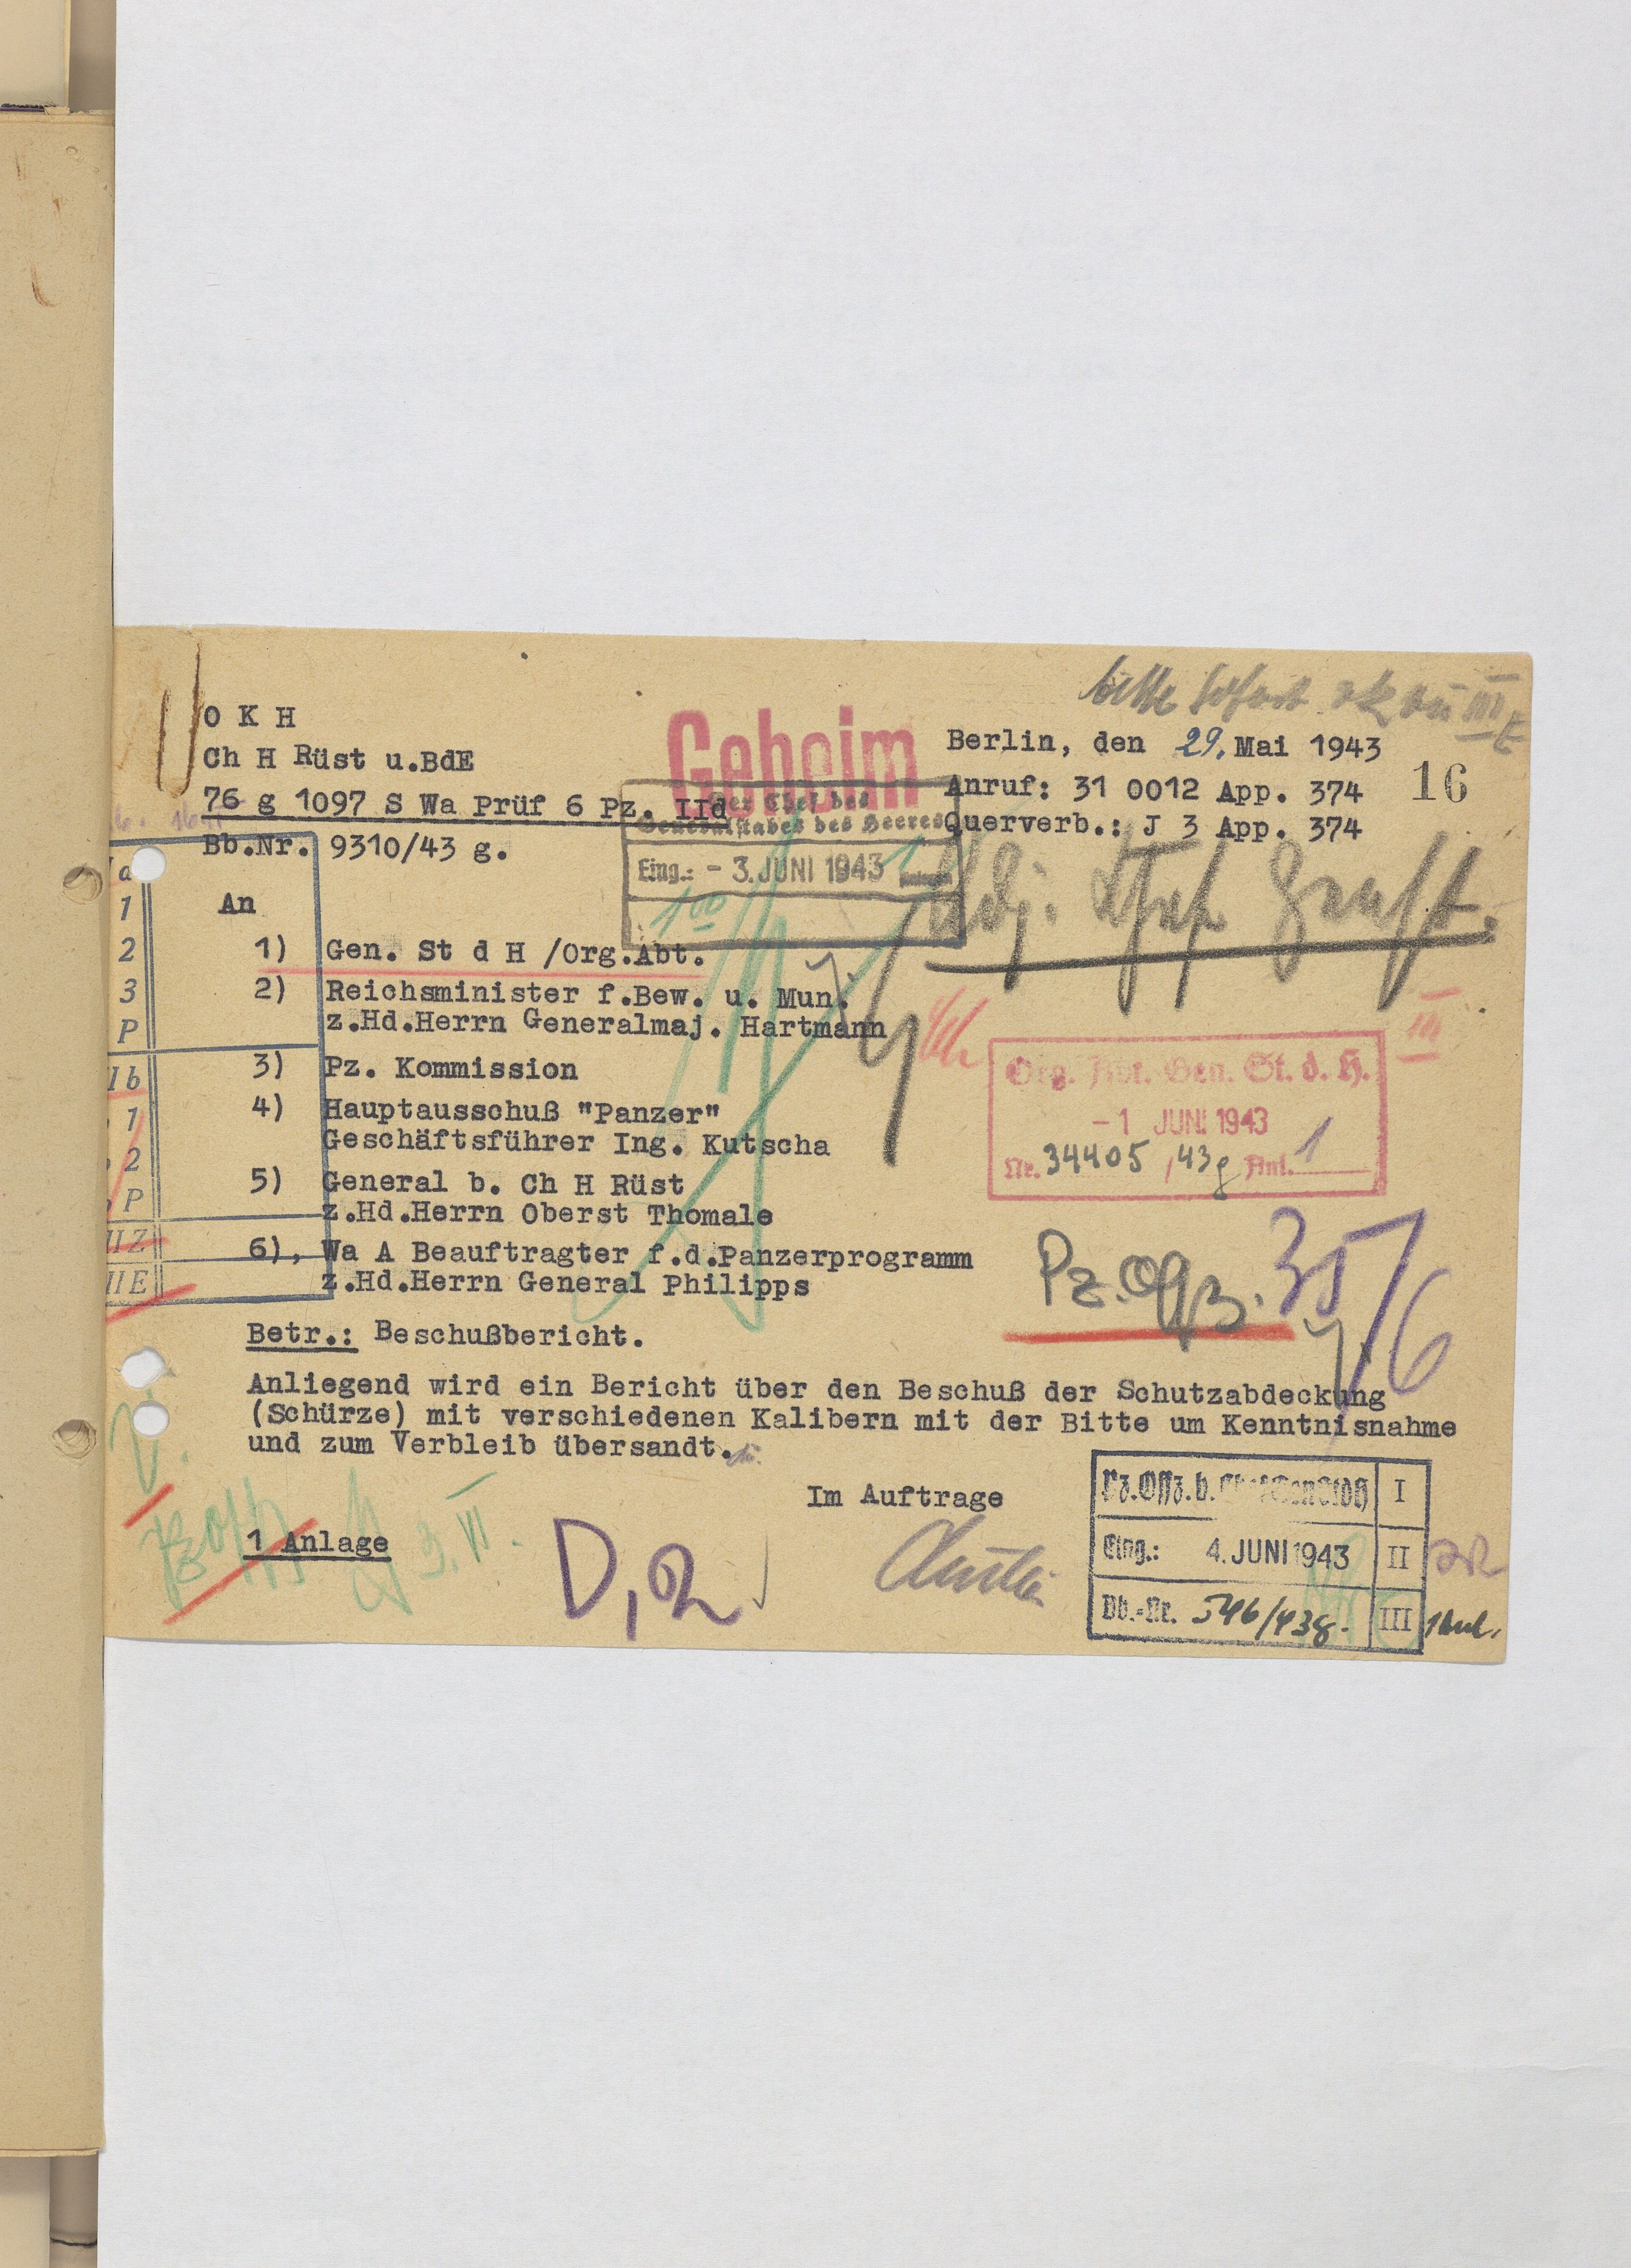 O K H
Ch H Rüst u.BdE
76 g 1097 S Wa Prüf 6 Pz. IId
Bb.Nr. 9310/43 g.
Geheim
Der Chef des
Generalstabes des Heeres
Eing.: - 3. JUNI 1943
bitte sofort
III
Berlin, den 29. Mai 1943
Anruf: 31 0012 App. 374
Querverb.: J 3 App. 374
16
a
1
2
3
P
Ib
1
2
P
II Z
II E
An
1) Gen. St d H /Org.Abt.
2) Reichsminister f.Bew. u. Mun.
z.Hd.Herrn Generalmaj. Hartmann
3) Pz. Kommission
4) Hauptausschuß "Panzer"
Geschäftsführer Ing. Kutscha
5) General b. Ch H Rüst
z.Hd.Herrn Oberst Thomale
6), Wa A Beauftragter f.d.Panzerprogramm
z.Hd.Herrn General Philipps
III
Org. Abt. Gen. St. d. H.
- 1 JUNI 1943
Nr. 34405 /43g Anl. 1
Pz.Offz.
Betr.: Beschußbericht.
Anliegend wird ein Bericht über den Beschuß der Schutzabdeckung
(Schürze) mit verschiedenen Kalibern mit der Bitte um Kenntnisnahme
und zum Verbleib übersandt.
Im Auftrage
1 Anlage
3. VI.
Pz.Offz.b. Chef GenStdH I
Eing.: 4. JUNI 1943 II
Bb.-Nr. 546/43g. III 1 Anl.